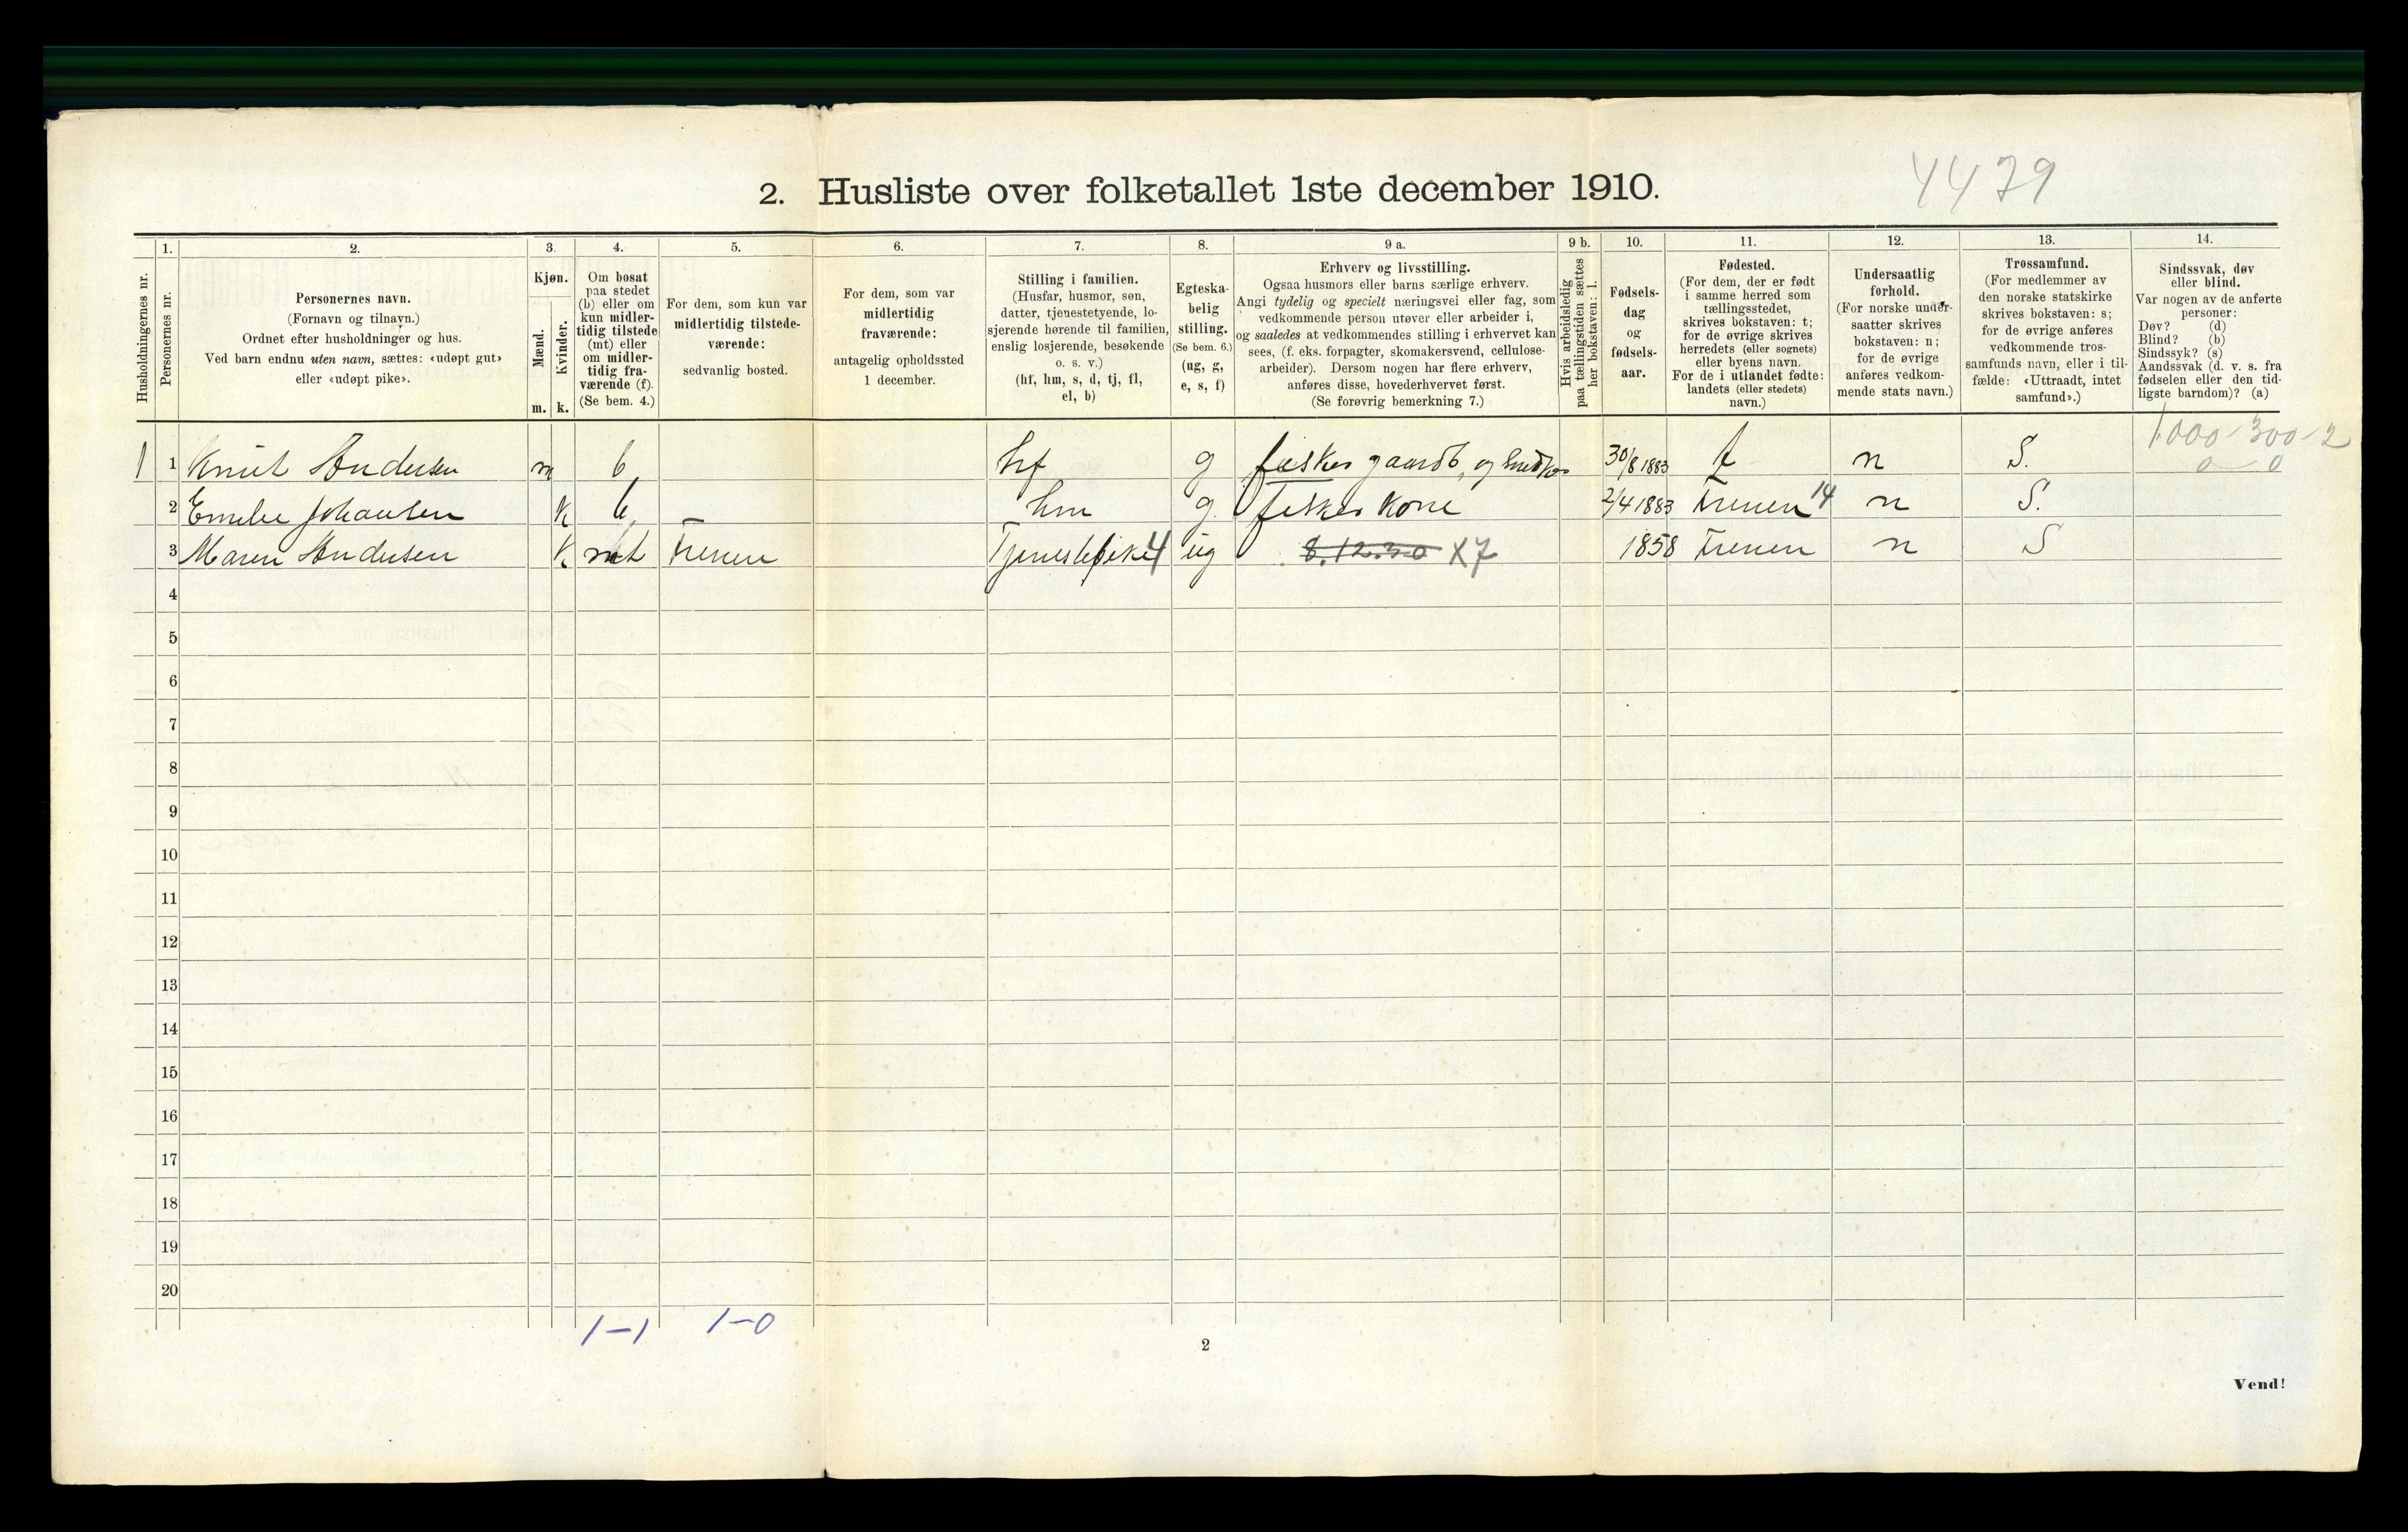 2. Husliste over folketallet 1ste december 1910.
4479
1. 2. 3. 4. 5. 6. 7. 8. 9 a. 9 b. 10. 11. 12. 13. 14.
Husholdningernes nr.
Personernes nr.
Personernes navn.
(Fornavn og tilnavn.)
Ordnet efter husholdninger og hus.
Ved barn endnu uten navn, sættes: «udøpt gut»
eller «udøpt pike».
Kjøn.
Mænd.
Kvinder.
m. k.
Om bosat
paa stedet
(b) eller om
kun midler-
tidig tilstede
(mt) eller
om midler-
tidig fra-
værende (f).
(Se bem. 4.)
For dem, som kun var
midlertidig tilstede-
værende:
sedvanlig bosted.
For dem, som var
midlertidig
fraværende:
antagelig opholdssted
1 december.
Stilling i familien.
(Husfar, husmor, søn,
datter, tjenestetyende, lo-
sjerende hørende til familien,
enslig losjerende, besøkende
o. s. v.)
(hf, hm, s, d, tj, fl,
el, b)
Egteska-
belig
stilling.
(Se bem. 6.)
(ug, g,
e, s, f)
Erhverv og livsstilling.
Ogsaa husmors eller barns særlige erhverv.
Angi tydelig og specielt næringsvei eller fag, som
vedkommende person utøver eller arbeider i,
og saaledes at vedkommendes stilling i erhvervet kan
sees, (f. eks. forpagter, skomakersvend, cellulose-
arbeider). Dersom nogen har flere erhverv,
anføres disse, hovederhvervet først.
(Se forøvrig bemerkning 7.)
Hvis arbeidsledig
paa tællingstiden sættes
her bokstaven: l.
Fødsels-
dag
og
fødsels-
aar.
Fødested.
(For dem, der er født
i samme herred som
tællingsstedet,
skrives bokstaven: t;
for de øvrige skrives
herredets (eller sognets)
eller byens navn.
For de i utlandet fødte:
landets (eller stedets)
navn.)
Undersaatlig
forhold.
(For norske under-
saatter skrives
bokstaven: n;
for de øvrige
anføres vedkom-
mende stats navn.)
Trossamfund.
(For medlemmer av
den norske statskirke
skrives bokstaven: s;
for de øvrige anføres
vedkommende tros-
samfunds navn, eller i til-
fælde: «Uttraadt, intet
samfund».)
Sindssvak, døv
eller blind.
Var nogen av de anførte
personer:
Døv? (d)
Blind? (b)
Sindssyk? (s)
Aandssvak (d. v. s. fra
fødselen eller den tid-
ligste barndom)? (a)
1000-300-2
0-0
1 1 Knut Andersen m b hf g fisker gaardb. og Snedker 30/8 1883 t n S.
2 Emelie Johansen K b — hm g. fisker kone 2/4 1883 Trenen 14 n S.
3 Maren Andersen K mt Trenen Tjenestepike 4 ug 8.12.30 X7 1858 Trenen n S
4
5
6
7
8
9
10
11
12
13
14
15
16
17
18
19
20
1-1 1-0
2
Vend!